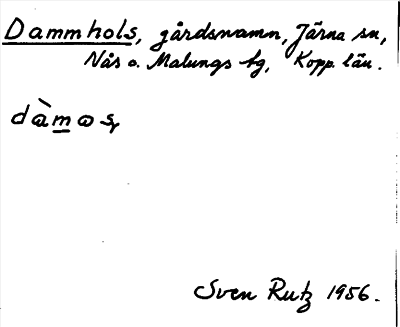 Dammhols, gårdsnamn, Järna sn,
Nås o. Malungs tg, Kopp. län.
Sven Rutz 1956.